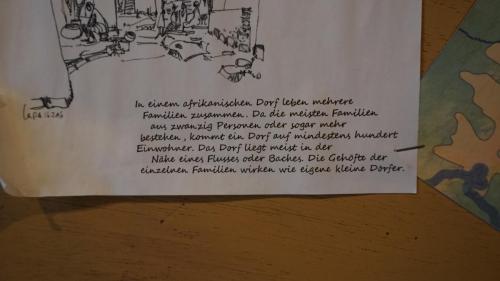 In einem afrikanischen Dorf leben mehrere
Familien zusammen. Da die meisten Familien
aus zwanzig Personen oder sogar mehr
bestehen, kommt ein Dorf auf mindestens hundert
Einwohner. Das Dorf liegt meist in der
Nähe eines Flusses oder Baches. Die Gehöfte der
einzelnen Familien wirken wie eigene kleine Dörfer.